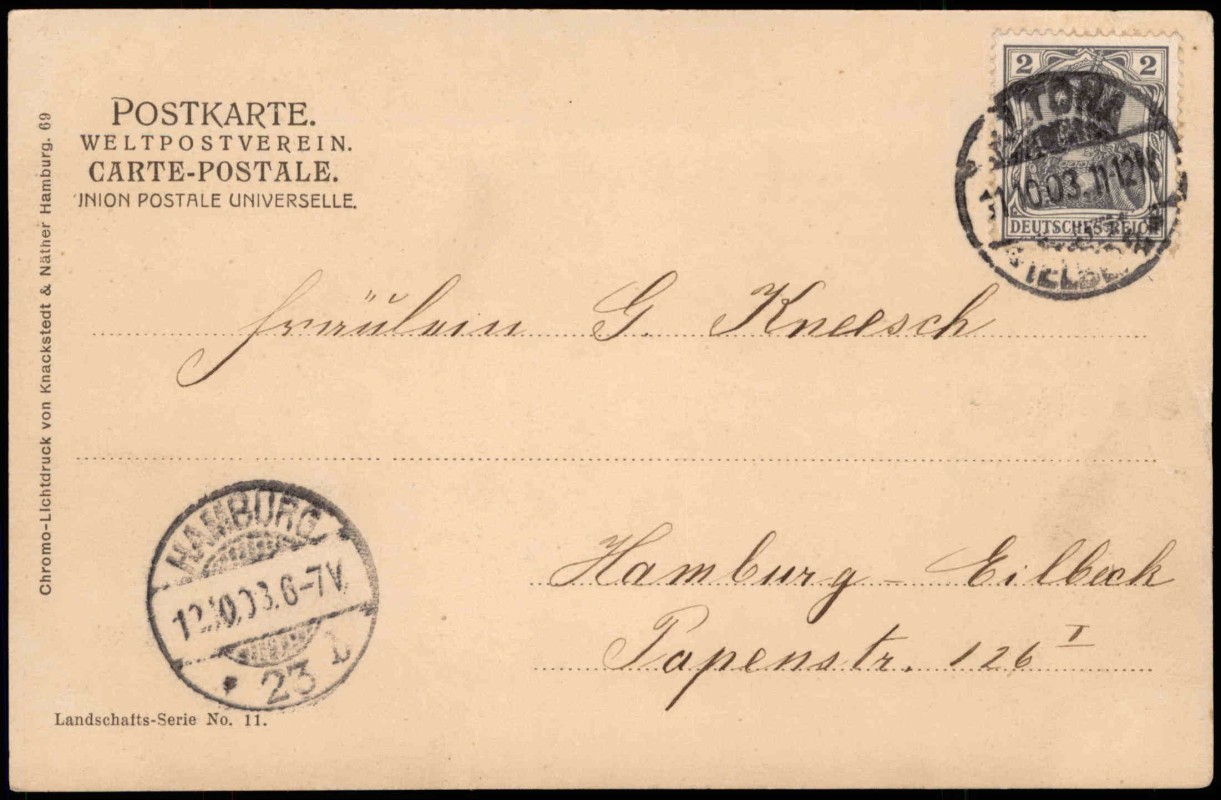 POSTKARTE.
WELTPOSTVEREIN.
CARTE-POSTALE.
UNION POSTALE UNIVERSELLE.
Chromo-Lichtdruck von Knackstedt & Näther Hamburg. 69
2 2
DEUTSCHES REICH
11.10.03. 11-12 N
Fräulein G. Kneesch
Hamburg - Eilbeck
Papenstr. 126 I
HAMBURG.
12.10.03. 6-7V.
* 23 b
Landschafts-Serie No. 11.